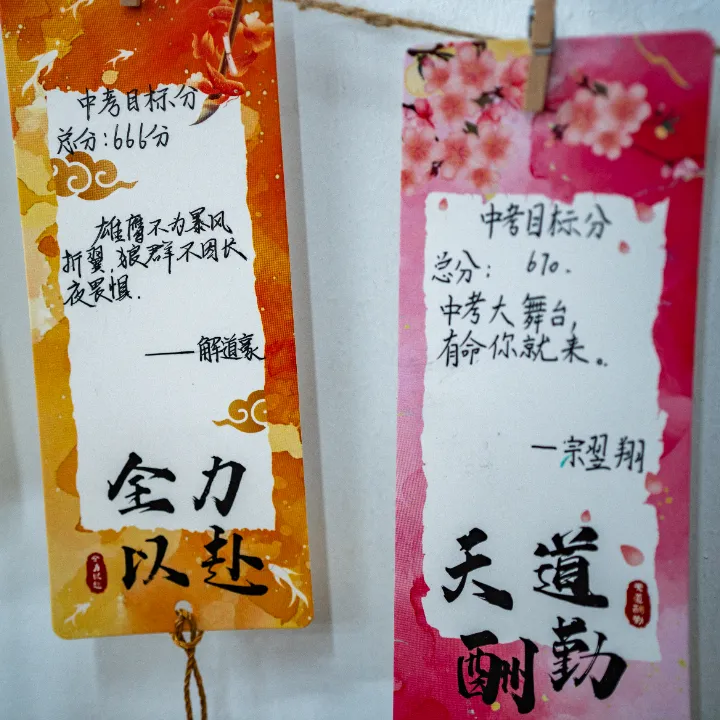 中考目标分
总分:666分
雄鹰不为暴风
折翼,狼群不因长
夜畏惧.
——解道豪
全力
以赴
中考目标分
总分: 610.
中考大舞台,
有命你就来。
—宗翌翔
天道
酬勤